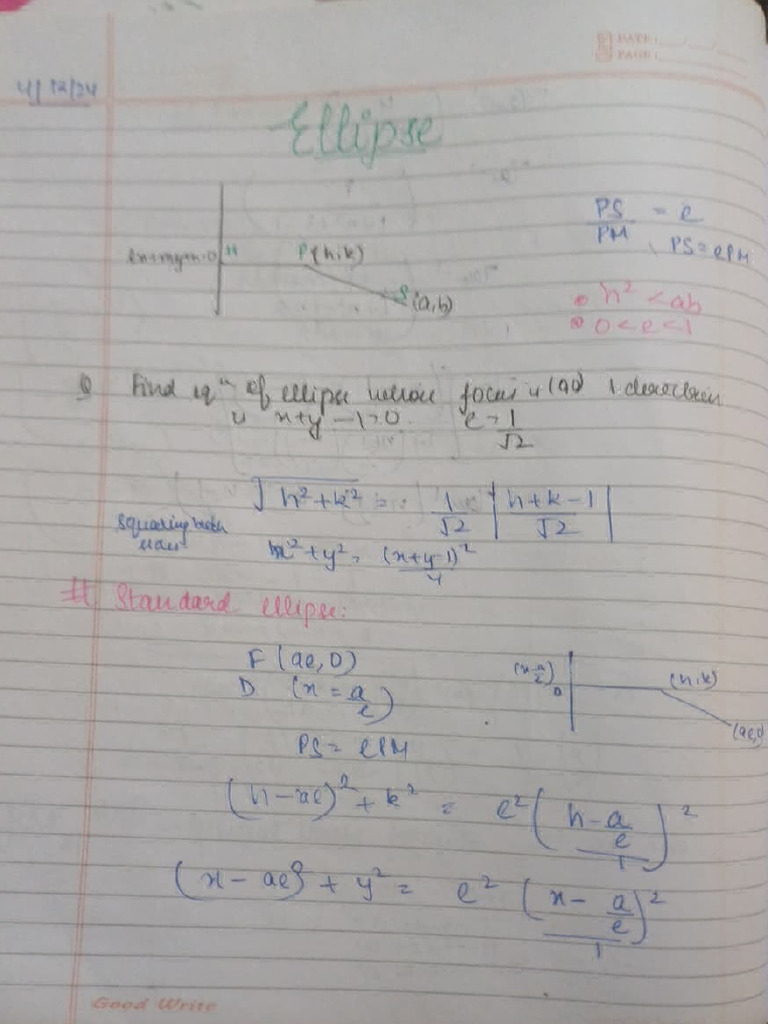 DATE:
PAGE:
4/12/24
Ellipse
PS/PM = e
, PS = ePM
M
P(h,k)
S(a,b)
h² < ab
0 < e < 1
Q Find eqⁿ of ellipse whose focus is (0,0)
is x+y-1=0. e = 1/√2
√h²+k² = 1/√2 |h+k-1/√2|
squaring both
x²+y² = (x+y-1)²/4
# Standard ellipse:
F (ae, 0)
D (x = a/e)
(h,k)
(ae,0)
PS = ePM
(h-ae)² + k² = e² (h - a/e / 1)²
(x-ae)² + y² = e² (x - a/e / 1)²
Good Write